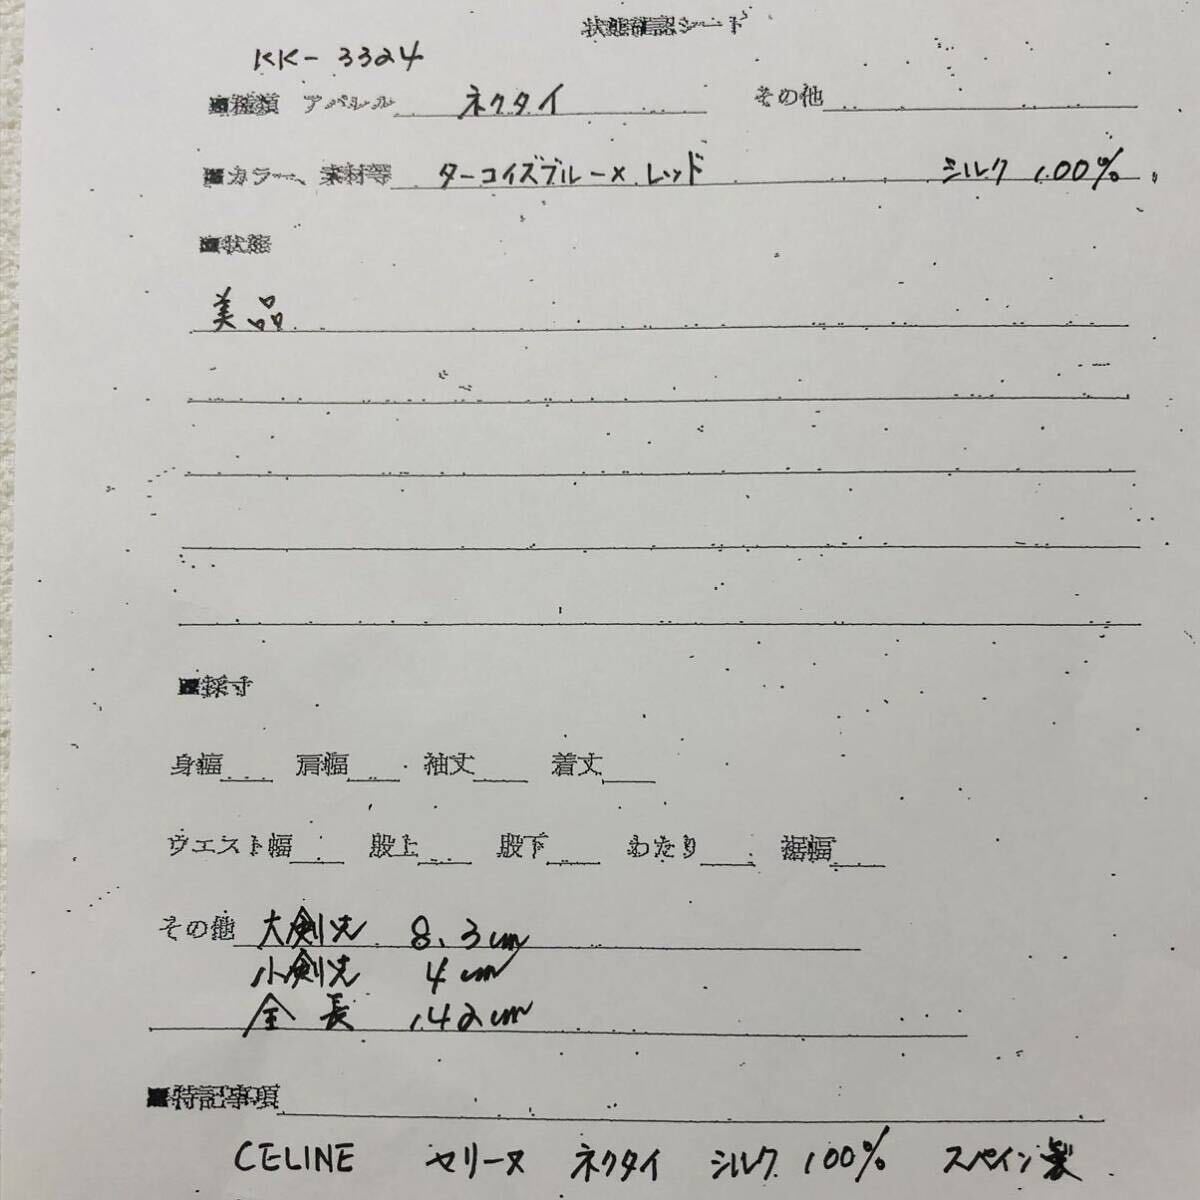 状態確認シート
KK-3324
■種類 アパレル ネクタイ その他
■カラー、素材等 ターコイズブルー×レッド シルク 100%
■状態
美品
■採寸
身幅 肩幅 袖丈 着丈
ウエスト幅 股上 股下 わたり 裾幅
その他 大剣先 8.3cm
小剣先 4cm
全長 142cm
■特記事項
CELINE セリーヌ ネクタイ シルク 100% スペイン製